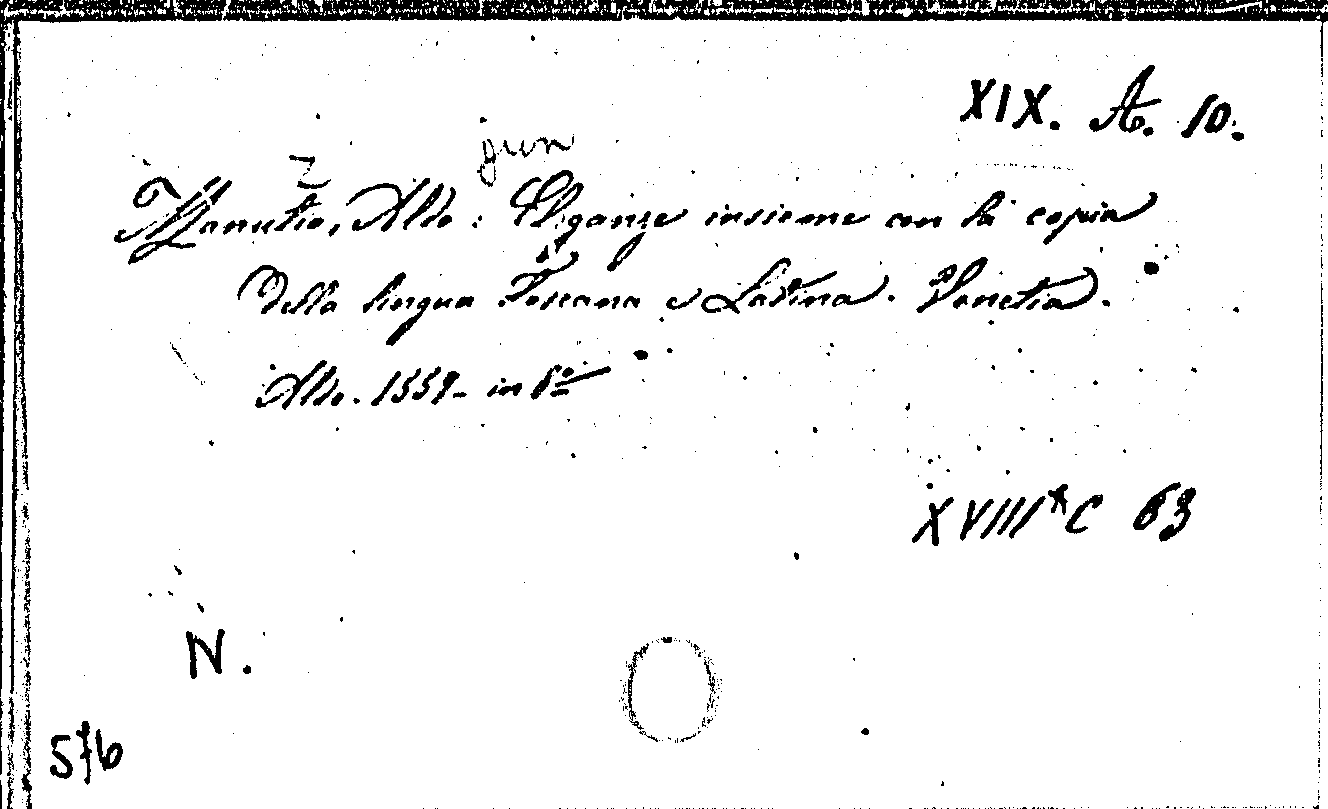 XIX. A. 10.
jun
z
Manutio, Aldo: Eleganze insieme con la copia
della lingua Toscana e Latina. Venetia.
Aldo. 1559. in 8º
XVIII* C 63
N.
576